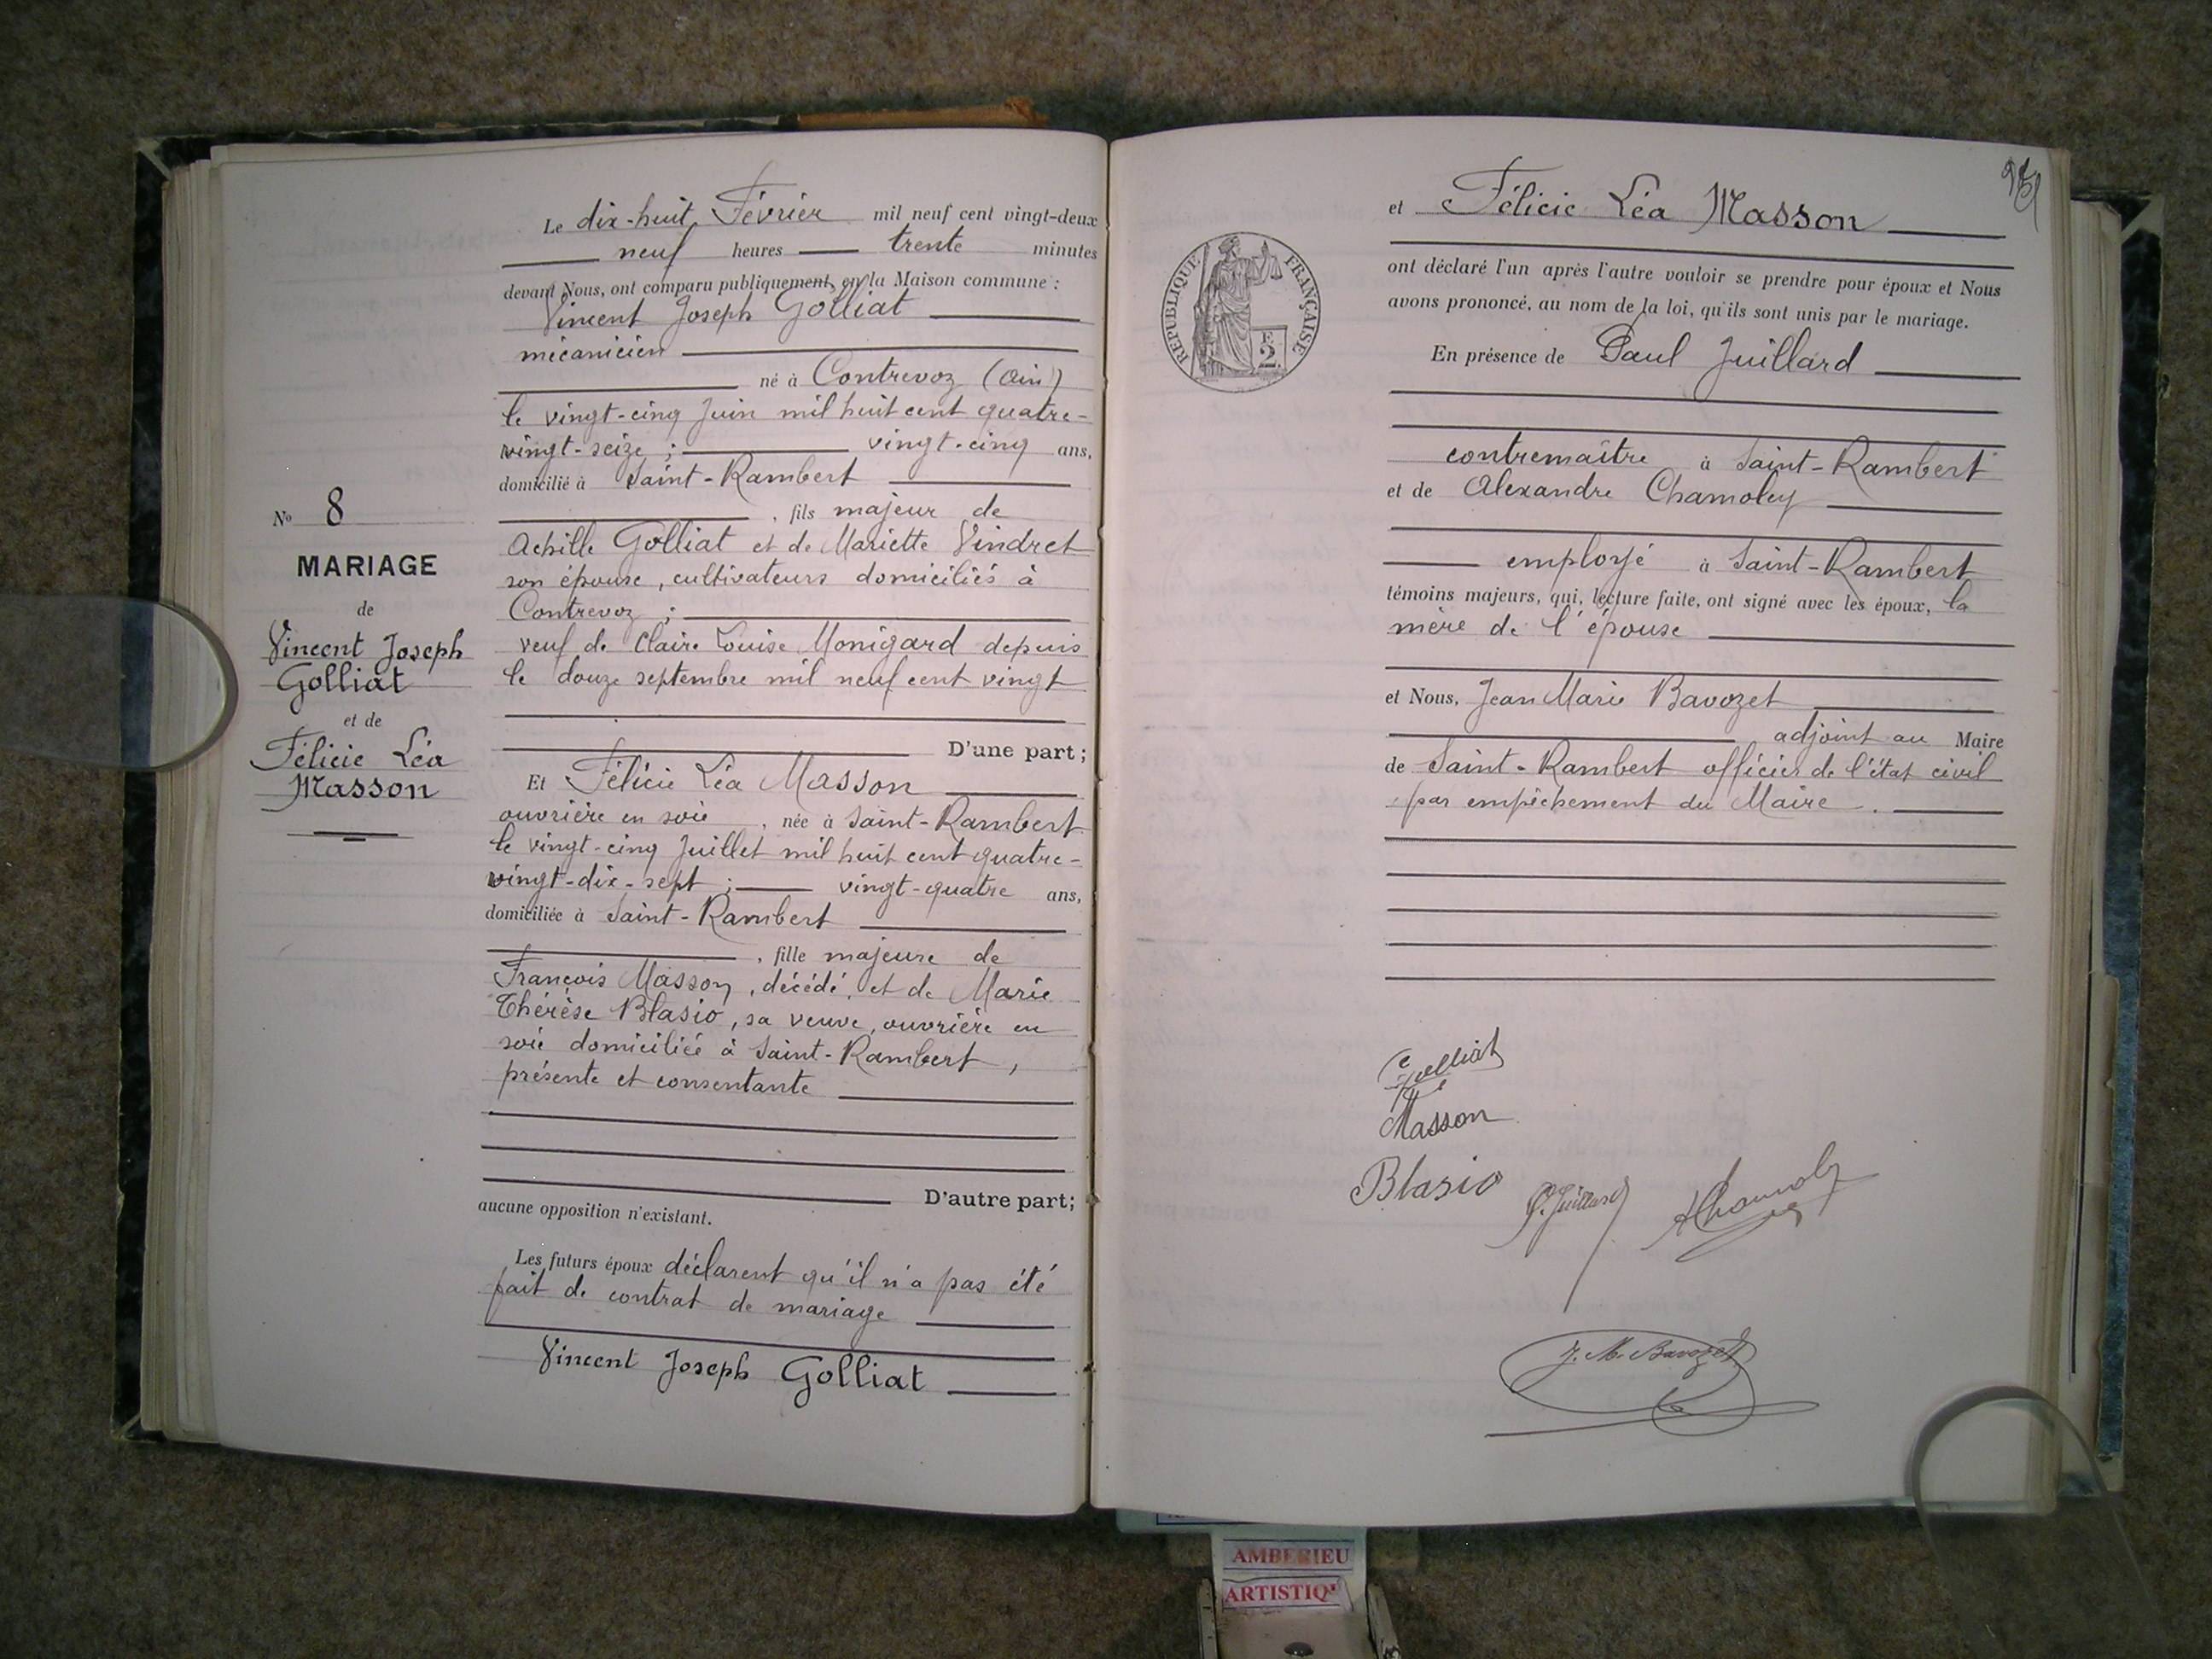 Le dix-huit Février mil neuf cent vingt-deux
neuf heures trente minutes
devant Nous, ont comparu publiquement, en la Maison commune :
Vincent Joseph Golliat
mécanicien
né à Contrevoz (Ain)
le vingt-cinq Juin mil huit cent quatre-
vingt-seize ; vingt-cinq ans,
domicilié à Saint-Rambert
, fils majeur de
Achille Golliat et de Mariette Vindret
son épouse, cultivateurs domiciliés à
Contrevoz ;
veuf de Claire Louise Monigard depuis
le douze septembre mil neuf cent vingt
D'une part ;
Et Félicie Léa Masson
ouvrière en soie, née à Saint-Rambert
le vingt-cinq Juillet mil huit cent quatre-
vingt-dix-sept ; vingt-quatre ans,
domiciliée à Saint-Rambert
, fille majeure de
François Masson, décédé, et de Marie
Thérèse Blasio, sa veuve, ouvrière en
soie domiciliée à Saint-Rambert,
présente et consentante
D'autre part ;
aucune opposition n'existant.
Les futurs époux déclarent qu'il n'a pas été
fait de contrat de mariage
Vincent Joseph Golliat
No 8
MARIAGE
de
Vincent Joseph
Golliat
et de
Félicie Léa
Masson
et Félicie Léa Masson
ont déclaré l'un après l'autre vouloir se prendre pour époux et Nous
avons prononcé, au nom de la loi, qu'ils sont unis par le mariage.
En présence de Paul Juillard
contremaître à Saint-Rambert
et de Alexandre Chamoley
employé à Saint-Rambert
témoins majeurs, qui, lecture faite, ont signé avec les époux, la
mère de l'épouse
et Nous, Jean Marie Bavozet
adjoint au Maire
de Saint-Rambert officier de l'état civil
par empêchement du Maire.
RÉPUBLIQUE FRANÇAISE
E
2
Golliat
Masson
Blasio
P. Juillard
J. M. Bavozet
AMBERIEU
ARTISTIQ